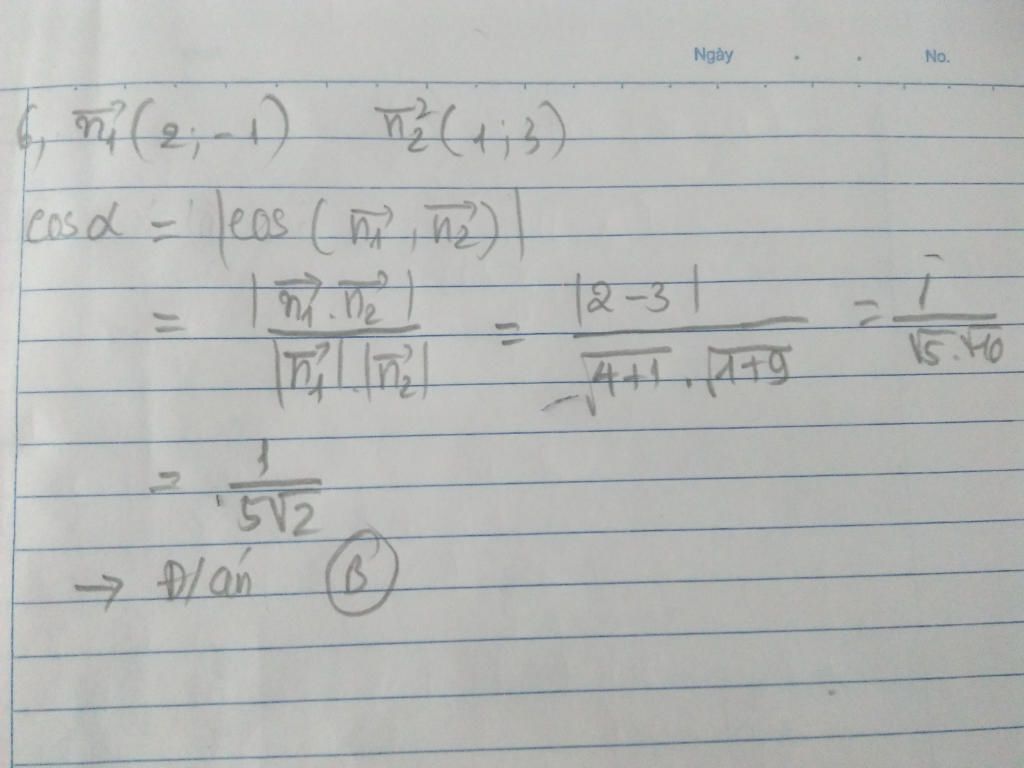 Ngày . . No.
6, n₁→(2; -1) n₂²(1; 3)
cos α = |cos (n₁→, n₂→)|
= |n₁→ . n₂→| / |n₁→| . |n₂→| = |2 - 3| / √(4+1) . √(1+9) = 1 / √5 . √10
= 1 / 5√2
→ Đ/án B